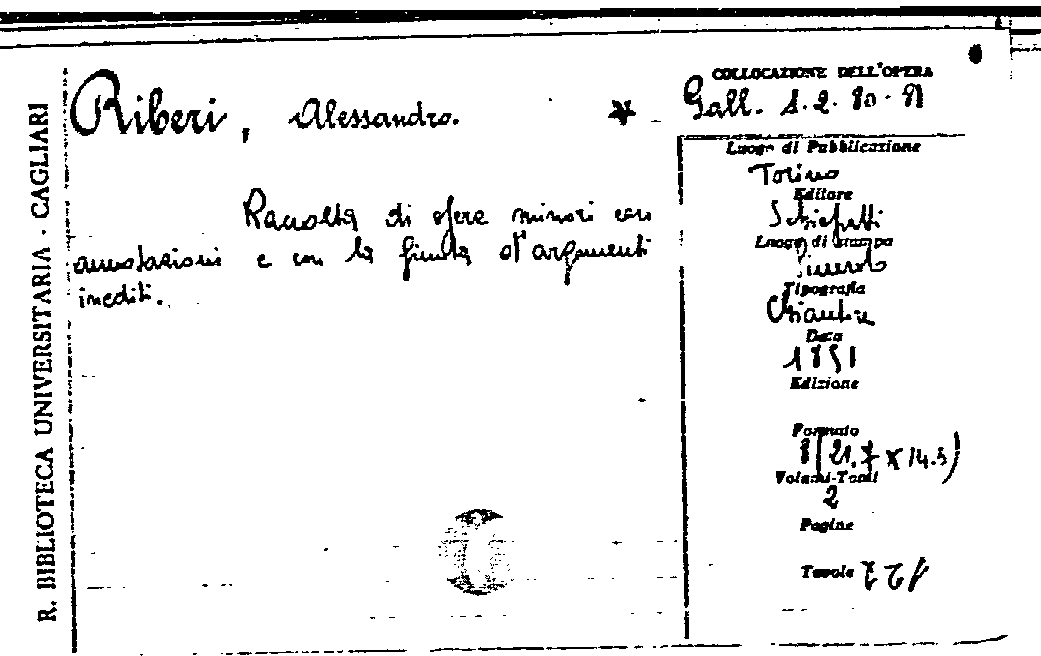 R. BIBLIOTECA UNIVERSITARIA - CAGLIARI
Riberi, Alessandro.
Raccolta di opere minori con
annotazioni e con la giunta d'argomenti
inediti.
COLLOCAZIONE DELL'OPERA
Gall. 1.2.80-81
Luogo di Pubblicazione
Torino
Editore
Schiepatti
Luogo di stampa
Pinerolo
Tipografia
Chiantore
Data
1851
Edizione
Formato
8 (21.7 x 14.5)
Volumi-Tomi
2
Pagine
Tavole